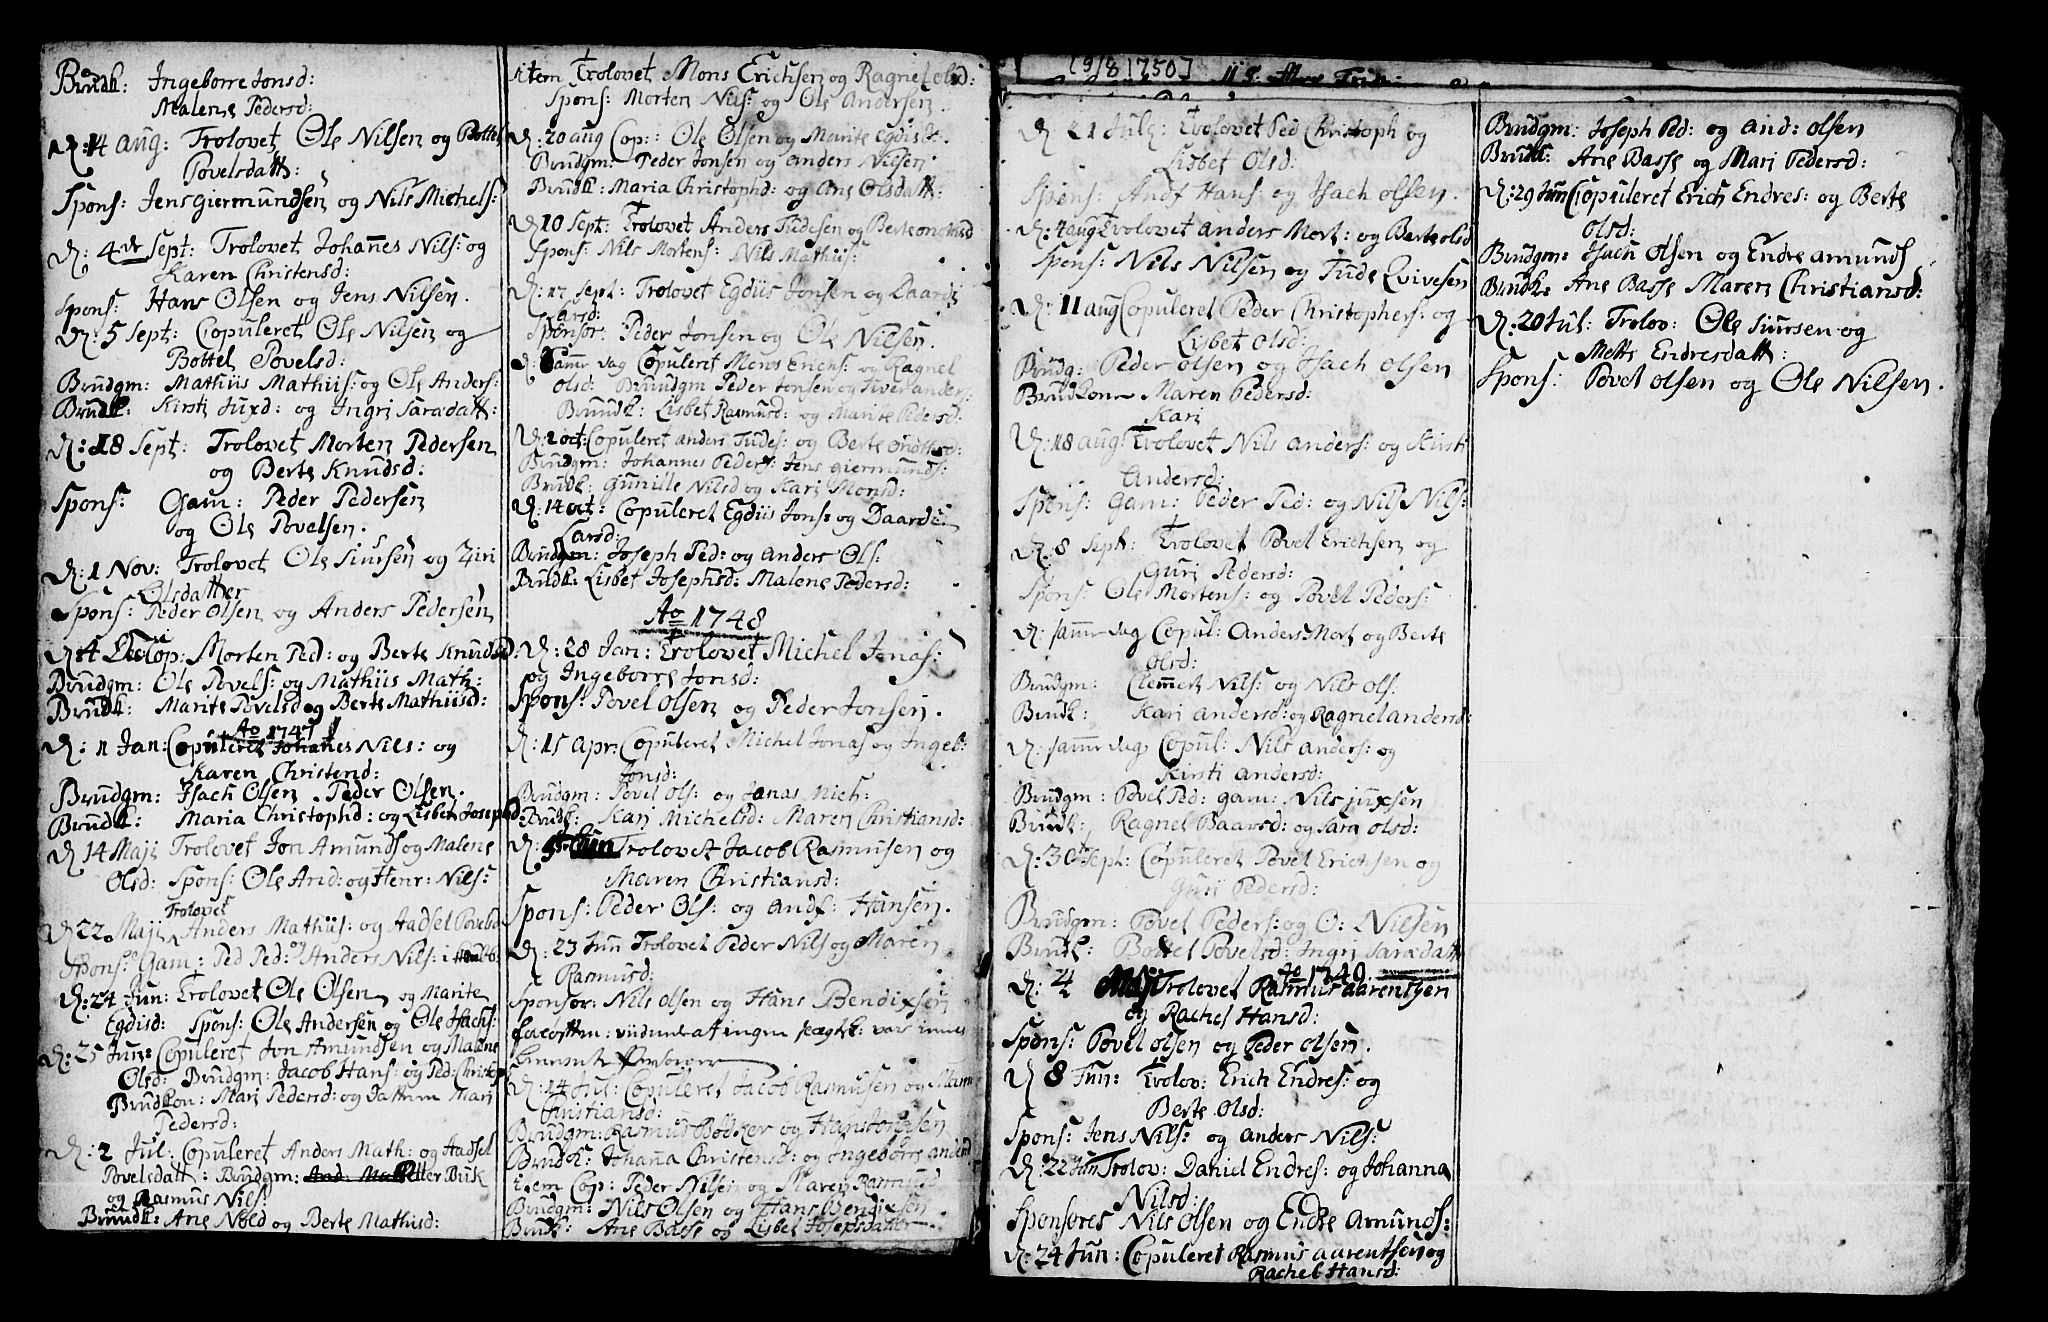 Brudk: Ingeborre Jonsd:
Malene Pedersd:
D: 14 aug: Trolovet Ole Nilsen og Bottel
Povelsdatt:
Spons: Jens giermundsen og Nils Michels:
D: 4de Sept: Trolovet Johañes Nils: og
Karen Christensd:
Spons: Hans Olsen og Jens Nilsen.
D: 5 Sept: Copuleret Ole Nilsen og
Bottel Povelsd:
Brudgm: Mathiis Mathiis: og Ole Anders:
Brudk: Kirsti Juxd: og Ingri Saradatt:
D: 18 Sept: Trolovet Morten Pedersen
og Berte Knudsd:
Spons: Gam: Peder Pedersen
og Ole Povelsen.
D: 1 Nov: Trolovet Ole Siursen og Ziri
Olsdatter
Spons: Peder Olsen og Anders Pedersen
D: 4 Dec: Cop: Morten Ped: og Berte Knudsd:
Brudgm: Ole Povels: og Mathiis Math:
Brudk: Marite Povelsd og Berte Mathiisd:
Ao 1747
D: 11 Jan: Copuleret Johañes Nils: og
Karen Christend:
Brudgm: Isach Olsen, Peder Olsen.
Brudk: Maria Christophd: og Lisbet Josephd:
D 14 Maji Trolovet Jon Amunds og Malene
Olsd: Spons: Ole And: og Henr: Nils:
Trolovet
D 22 Maji Anders Mathiis: og Aadsel Povelsd
Spons: Gam: Ped Ped: og Anders Nils: i
D: 24 Jun: Trolovet Ole Olsen og Marite
Egdisd: Spons: Ole Andersen og Ole Isachs:
D: 25 Jun: Copuleret Jon Amundsen og Malene
Olsd: Brudgm: Jacob Hans: og Ped: Christop
Brudkon: Mari Pedersd: og Mari
Pedersd:
D: 2 Jul: Copuleret Anders Math: og Aadsel
Povelsdatt: Brudgm: Peter Buk
og Rasmus Nils:
Brudk: Ane Nold og Berte Mathisd:
item Trolovet Mons Erichsen og Ragnel olsd:
Spons: Morten Nils: og Ole Andersen.
D: 20 aug Cop: Ole Olsen og Marite Egdisd:
Brudgm: Peder Jonsen og Anders Nilsen.
Brudk: Maria Christophd: og Ane Olsdatt:
D 10 Sept: Trolovet Anders Tudesen og Berte
Spons: Nils Mortens: Nils Mathiis:
D: 17 Sept: Trolovet Egdiis Jonsen og Daardi
Larsd:
Sponsor: Peder Jonsen og Ole Nilsen.
D: samme dag Copuleret Mons Erichs: og Ragnel
Olsd: Bruudgm Peder Jonsen og Povel anders:
Bruudk: Lisbet Rasmusd: og Marite Pedersd:
D: 1 oct: Copuleret Anders Tudes: og Berte
Brudgm: Johannes Peders: Jens giermunds:
Brudk: Gunille Nilsd og Kari Monsd:
D: 14 oct: Copuleret Egdiis Jons: og Daardi
Larsd:
Brudgm: Joseph Ped: og Anders Ols:
Brudk: Lisbet Josephsd: Malene Pedersd:
Ao 1748
D: 28 Jan: Trolovet Michel Jonas:
og Ingeborre Jonsd:
Spons: Povel Olsen og Peder Jonsen.
D: 15 Apr: Copuleret Michel Jonas og Ingeb:
Jonsd:
Brudgm: Povel Ols: og Jonas Mich:
Brudk: Kari Michelsd: Maren Christiansd:
D: Jun Trolovet Jacob Rasmusen og
Maren Christiansd:
Spons: Peder Ols: og Andf: Hansen.
D: 23 Jun Trolovet Peder Nils og Maren
Rasmusd:
Sponsor: Nils Olsen og Hans Bendixsen
at ingen var
D: 14 Jul: Copuleret Jacob Rasmusen og Maren
Christiansd:
Brudgm: Rasmus Bödker og Hans Jonsen
Brudk: Johaña Christensd: og Ingeborre Andersd
item Cop: Peder Nilsen og Maren Rasmusd
Brudgm: Nils Olsen og Hans Bendixsen
Brudk: Ane Basse og Lisbet Josepsdatter
[9/8 1750]
D 21 July: Trolovet Ped Christoph og
Lisbet Olsd:
Spons: Andf Hans: og Isach Olsen.
D: 4 aug Trolovet Anders Mort: og Berte olsd
Spons: Nils Nilsen og Tude Qvivesen
D: 11 aug Copuleret Peder Christophers: og
Lisbet Olsd:
Brudg: Peder Olsen og Isach Olsen
Brudkone Maren Pedersd:
Kari
D: 18 aug: Trolovet Nils Anders: og Kirsti
Andersd:
Spons: Gam: Peder Ped: og Nils Nils:
D: 8 Sept: Trolovet Povel Erichsen og
Guri Pedersd:
Spons: Ole Mortens: og Povel Peders:
D: samme dag Copul: Anders Mort og Berte
Olsd:
Brudgm: Clemmet Nils: og Nils Ols.
Brudk: Kari Andersd: og Ragnel andersd:
D: samme dag Copul: Nils Anders: og
Kirsti Andersd:
Brudgm: Povel Ped: gam: Nils juxsen
Brudk: Ragnel Baarsd: og Sara Olsd:
D: 30 Sept: Copuleret Povel Erichsen og
Guri Pedersd:
Brudgm: Povel Peders: og O: Nilsen
Brudk: Bottel Povelsd: Ingri Saradatt
Ao 1749
D: 4 Maji Trolovet Rasmus aarentsen
og Rachel Hansd:
Spons: Povel Olsen og Peder Olsen.
D 8 Jun: Trolov: Erich Endres: og
Berte Olsd:
Spons: Jens Nils: og Anders Nils:
D: 22 Jun Trolov: Daniel Endres: og Johanna
Nilsd:
Sponsores Nils Olsen og Endre Amunds:
D: 24 Jun: Copuleret Rasmus aarentsen og
Rachel Hansd:
Brudgm: Joseph Ped: og And: Olsen
Brudk: Ane Basse og Mari Pedersd:
D: 29 Jun Copuleret Erich Endres: og Berte
Olsd:
Brudgm: Isach Olsen og Endre Amunds
Brudk: Ane Basse Maren Christiansd:
D: 20 Jul: Trolov: Ole Siursen og
Mette Endresdatt:
Spons: Povel Olsen og Ole Nilsen.